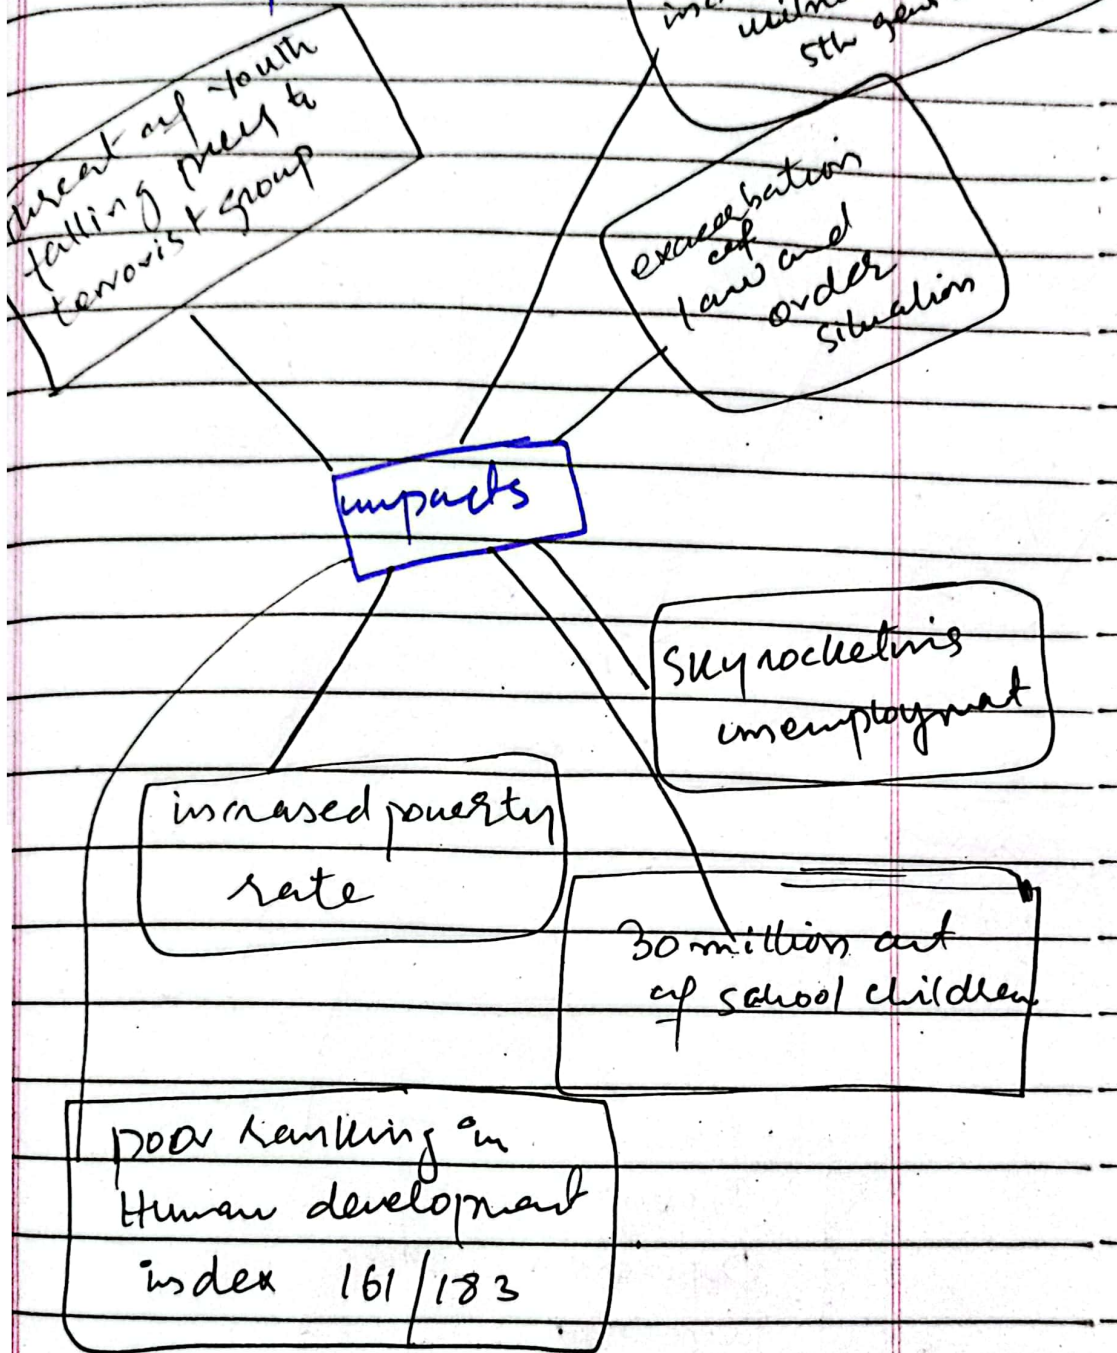 threat of Youth
falling prey to
terrorist group
5th gen
exacerbation
of
law and
order
situation
impacts
Skyrocketing
unemployment
increased poverty
rate
30 million out
of school children
poor ranking in
Human development
index 161/183